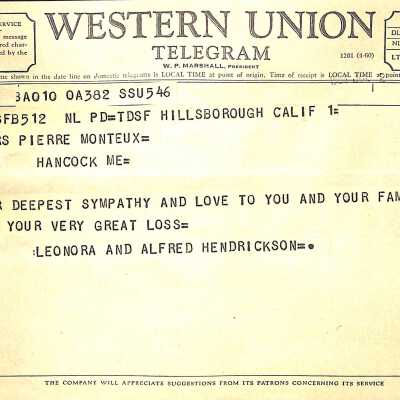 SERVICE
WESTERN UNION
TELEGRAM
W. P. MARSHALL, PRESIDENT
1201 (4-60)
message
DL
NL
LT
shown in the date line on domestic telegrams is LOCAL TIME at point of origin. Time of receipt is LOCAL TIME at point
BA010 OA382 SSU546
SFB512 NL PD=TDSF HILLSBOROUGH CALIF 1=
RS PIERRE MONTEUX=
HANCOCK ME=
R DEEPEST SYMPATHY AND LOVE TO YOU AND YOUR FAM
YOUR VERY GREAT LOSS=
:LEONORA AND ALFRED HENDRICKSON=•
THE COMPANY WILL APPRECIATE SUGGESTIONS FROM ITS PATRONS CONCERNING ITS SERVICE